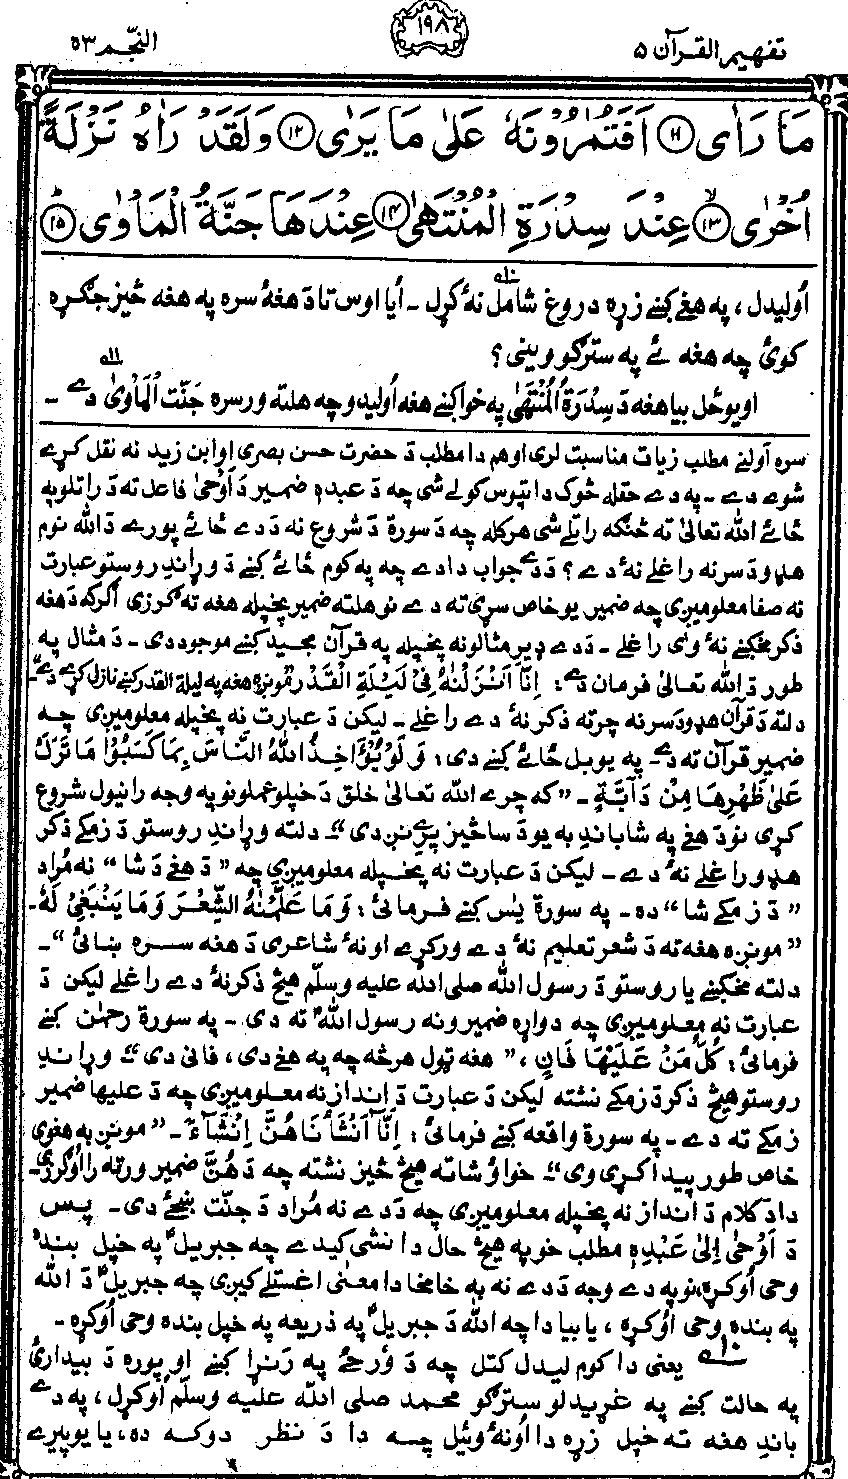 تفهيم القرآن ۵
۱۹۸
النّجم ۵۳
مَا رَاٰى ⑪ اَفَتُمٰرُوْنَهٗ عَلٰى مَا يَرٰى ⑫ وَلَقَدْ رَاٰهُ نَزْلَةً
اُخْرٰى ⑬ عِنْدَ سِدْرَةِ الْمُنْتَهٰى ⑭ عِنْدَهَا جَنَّةُ الْمَاْوٰى ⑮
اُوليدل ، په هغې كښے زړه دروغ شامل نهٔ كړل ـ آيا اوس تا دَ هغهٔ سره په هغه څيز جګړه
كوئ چه هغه ئے په سترګو وينی ؟
او يو ځل بيا هغه دَ سِدْرَةُ الْمُنْتَهٰى په خوا كښے هغه اُوليدو چه هلته ورسره جَنّت الْمَاْوٰى دے ـ
سره آولنے مطلب زيات مناسبت لری او هم دا مطلب دَ حضرت حسن بصری او ابن زيد نه نقل كړے
شوے دے ـ په دے حقله څوک دا تپوس كولے شی چه دَ عبدهٖ ضمير دَ اَوْحٰى فاعل ته دَ راتلو په
ځائے الله تعالىٰ ته څنګه راتلے شی هركله چه دَ سورة دَ شروع نه دَ دے ځائے پورے دَ الله نوم
هډو دَ سر نه راغلے نهٔ دے ؟ دَ دے جواب دا دے چه په كوم ځائے كښے دَ وړاندِ روستو عبارت
نه صفا معلوميږی چه ضمير يو خاص سړی ته دے نو هلته ضمير پخپله هغه ته ګرزی اګر كه دَ هغه
ذكر مخكښے نهٔ وی راغلے ـ دَ دے ډير مثالونه پخپله په قرآن مجيد كښے موجود دی ـ دَ مثال په
طور دَ الله تعالىٰ فرمان دے : اِنَّا اَنْزَلْنٰهُ فِيْ لَيْلَةِ الْقَدْرِ "مونږه هغه په ليلة القدر كښے نازل كړے دے" ـ
دلته دَ قرآن هډو دَ سر نه چرته ذكر نهٔ دے راغلے ـ ليكن دَ عبارت نه پخپله معلوميږی چه
ضمير قرآن ته دے ـ په يو بل ځائے كښے دی : وَلَوْ يُؤَاخِذُ اللّٰهُ النَّاسَ بِمَا كَسَبُوْا مَا تَرَكَ
عَلٰى ظَهْرِهَا مِنْ دَآبَّةٍ ـ "كه چرے الله تعالىٰ خلق دَ خپلو عملونو په وجه رانيول شروع
كړی نو دَ هغې په شا باندِ به يو دَ سا څيز پرے نږدی" ـ دلته وړاندِ روستو دَ زمكے ذكر
هډو راغلے نهٔ دے ـ ليكن دَ عبارت نه پخپله معلوميږی چه "دَ هغې دَ شا" نه مُراد
"دَ زمكے شا" ده ـ په سورة يٰس كښے فرمائی : وَمَا عَلَّمْنٰهُ الشِّعْرَ وَمَا يَنْبَغِيْ لَهٗ ـ
"مونږه هغه ته دَ شعر تعليم نهٔ دے وركړے او نهٔ شاعری دَ هغه سره ښائی" ـ
دلته مخكښے يا روستو دَ رسول الله صلى الله عليه وسلّم هيڅ ذكر نهٔ دے راغلے ليكن دَ
عبارت نه معلوميږی چه دواړه ضميرونه رسول الله ﷺ ته دی ـ په سورة رحمٰن كښے
فرمائی : كُلُّ مَنْ عَلَيْهَا فَانٍ ، "هغه ټول هرڅه چه په هغې دی ، فانی دی" ـ وړاندِ
روستو هيڅ ذكر دَ زمكے نشته ليكن دَ عبارت دَ انداز نه معلوميږی چه دَ عليها ضمير
زمكے ته دے ـ په سورة واقعه كښے فرمائی : اِنَّآ اَنْشَاْنَاهُنَّ اِنْشَآءً ـ "مونږ به هغوی
خاص طور پيدا كړی وی" ـ خوا ؤ شا ته هيڅ څيز نشته چه دَ هُنَّ ضمير ورته را اُوګرزی ـ
دا دَ كلام دَ انداز نه پخپله معلوميږی چه دَ دے نه مُراد دَ جنّت ښځے دی ـ پس
دَ اَوْحٰى اِلٰى عَبْدِهٖ مطلب خو په هيڅ حال دا نشی كيدے چه جبريلؑ په خپل بنده
وحی اُوكړه ، نو په دے وجه دَ دے نه به خامخا دا معنٰی اغستلے كيږی چه جبريلؑ دَ الله
په بنده وحی اُوكړه ، يا بيا دا چه الله دَ جبريلؑ په ذريعه په خپل بنده وحی اُوكړه ـ
۱۰ـه يعنی دا كوم ليدل كتل چه دَ ورځے په رنړا كښے او پوره دَ بيدارئ
په حالت كښے په غړيدلو سترګو محمد صلى الله عليه وسلّم اُوكړل ، په دے
باندِ هغه ته خپل زړه دا اُونهٔ وئيل چه دا دَ نظر دوكه ده ، يا يو پيرے